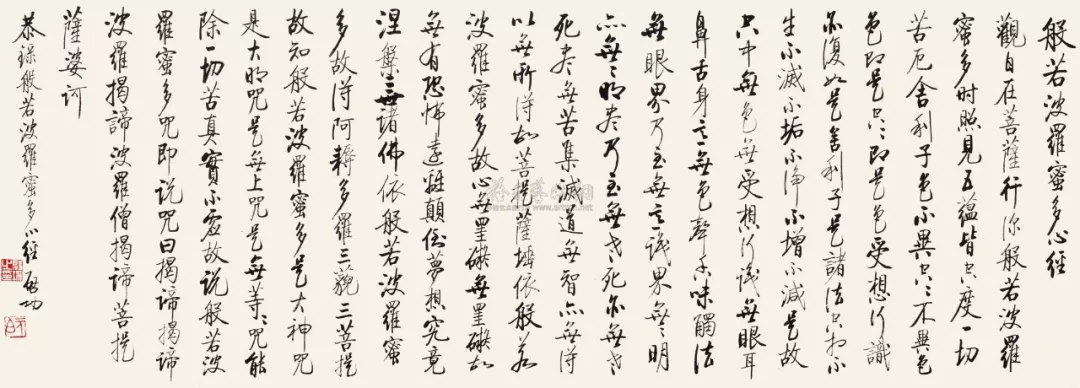 般若波羅蜜多心經
觀自在菩薩行深般若波羅
蜜多时照見五蘊皆空度一切
苦厄舍利子色不異空〻不異色
色即是空〻即是色受想行識
亦復如是舍利子是諸法空相不
生不滅不垢不淨不增不減是故
空中無色無受想行識無眼耳
鼻舌身意無色聲香味觸法
無眼界乃至無意識界無〻明
亦無〻明盡乃至無老死亦無老
死盡無苦集滅道無智亦無得
以無所得故菩提薩埵依般若
波羅蜜多故心無罣礙無罣礙故
無有恐怖遠離顛倒夢想究竟
涅槃三世諸佛依般若波羅蜜
多故得阿耨多羅三藐三菩提
故知般若波羅蜜多是大神咒
是大明咒是無上咒是無等〻咒能
除一切苦真實不虛故說般若波
羅蜜多咒即說咒曰揭諦揭諦
波羅揭諦波羅僧揭諦菩提
薩婆訶
恭錄般若波羅蜜多心經 啟功